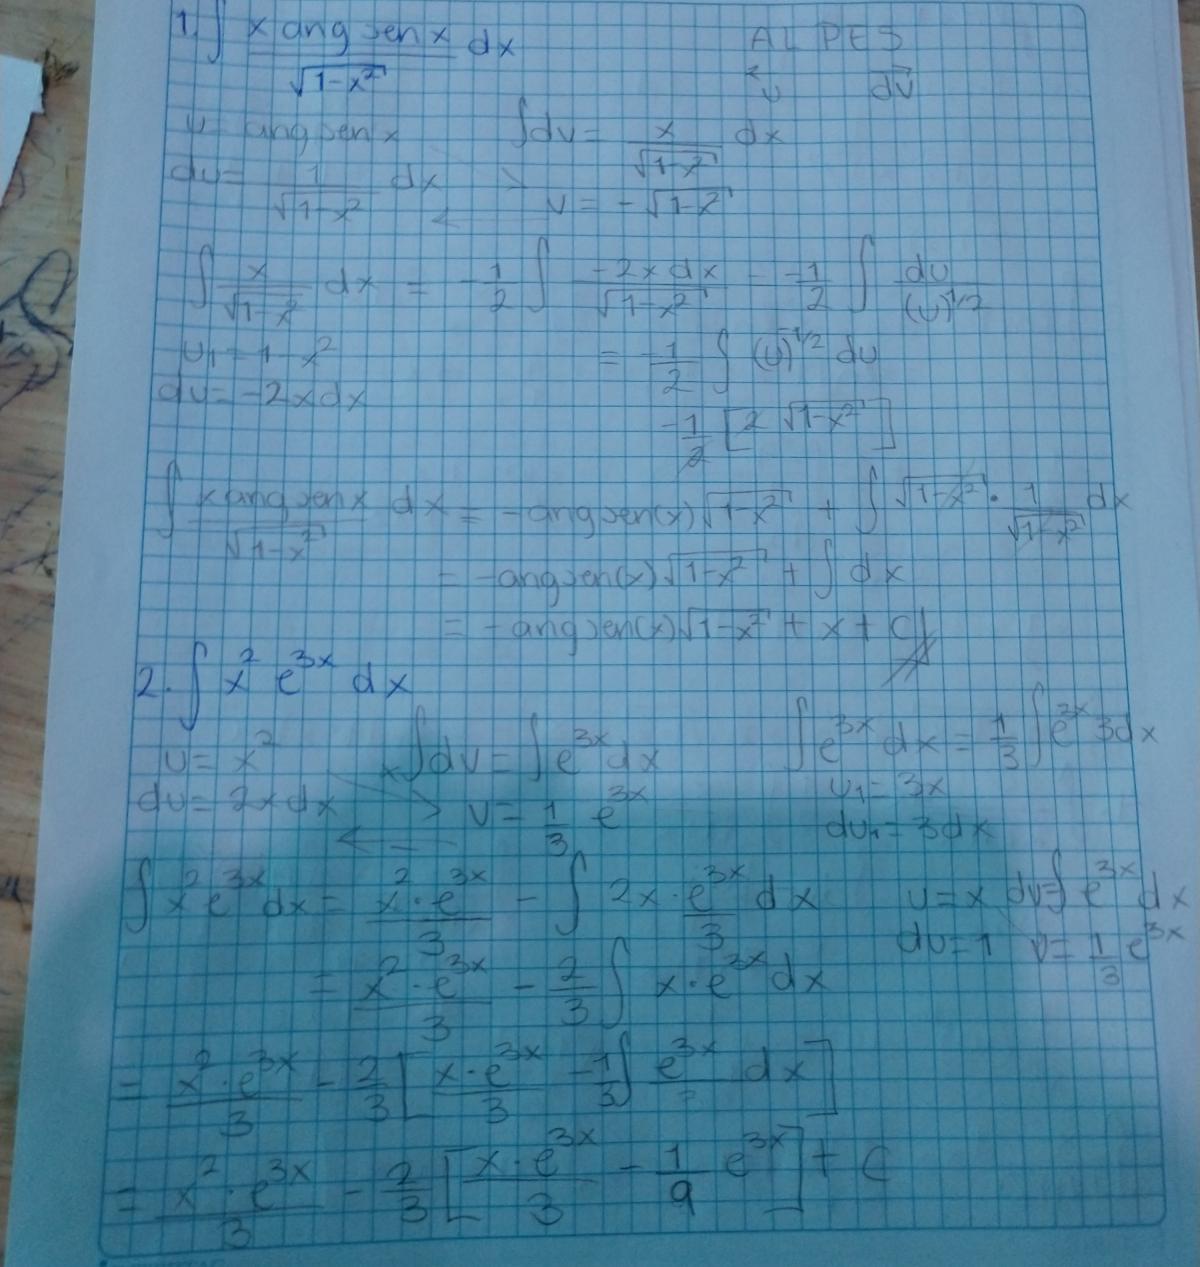 1. ∫ x ang sen x / √(1-x²) dx    ALPES
u    dv
u   ang sen x    ∫dv = x / √(1-x²) dx
du = 1 / √(1-x²) dx    v = -√(1-x²)
∫ x / √(1-x²) dx = -1/2 ∫ -2x dx / √(1-x²) - -1/2 ∫ du / (u)^1/2
u₁ = 1-x²    = -1/2 ∫ (u)^-1/2 du
du = -2x dx
-1/2 [2 √(1-x²)]
∫ x ang sen x / √(1-x²) dx = -ang sen(x) √(1-x²) + ∫ √(1-x²) · 1 / √(1-x²) dx
= -ang sen(x) √(1-x²) + ∫ dx
= -ang sen(x) √(1-x²) + x + C
2. ∫ x² e^3x dx
u = x²    ∫dv = ∫ e^3x dx    ∫ e^3x dx = 1/3 ∫ e^3x 3dx
du = 2x dx    v = 1/3 e^3x    u₁ = 3x
du₁ = 3dx
∫ x² e^3x dx = x² · e^3x / 3 - ∫ 2x · e^3x / 3 dx    u = x  dv = ∫ e^3x dx
du = 1    v = 1/3 e^3x
= x² · e^3x / 3 - 2/3 ∫ x · e^3x dx
= x² · e^3x / 3 - 2/3 [x · e^3x / 3 - 1/3 ∫ e^3x dx]
= x² · e^3x / 3 - 2/3 [x · e^3x / 3 - 1/9 e^3x] + C